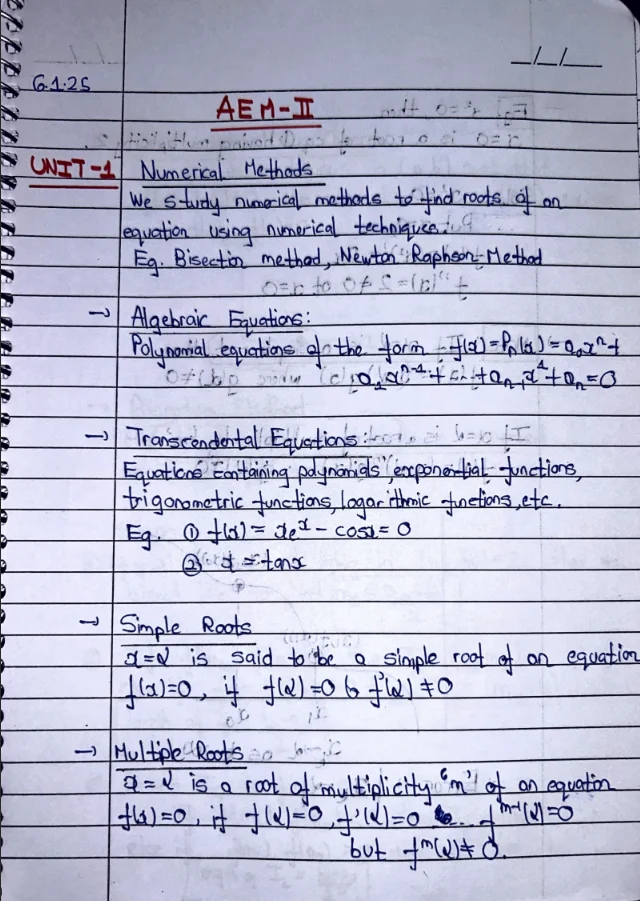 __/__/__
6.1.25
AEM-II
UNIT-1 Numerical Methods
We study numerical methods to find roots of an
equation using numerical techniques.
Eg. Bisection method, Newton Raphson Method
→ Algebraic Equations:
Polynomial equations of the form f(x) = Pₙ(x) = a₀xⁿ +
a₁xⁿ⁻¹ + ... + aₙ₋₁x¹ + aₙ = 0
→ Transcendental Equations:
Equations containing polynomials, exponential functions,
trigonometric functions, logarithmic functions, etc.
Eg. ① f(x) = xeˣ - cosx = 0
② x = tanx
→ Simple Roots
x=α is said to be a simple root of an equation
f(x)=0, if f(α)=0 & f'(α) ≠ 0
→ Multiple Roots
x=α is a root of multiplicity 'm' of an equation
f(x)=0, if f(α)=0, f'(α)=0 ... fᵐ⁻¹(α)=0
but fᵐ(α) ≠ 0.